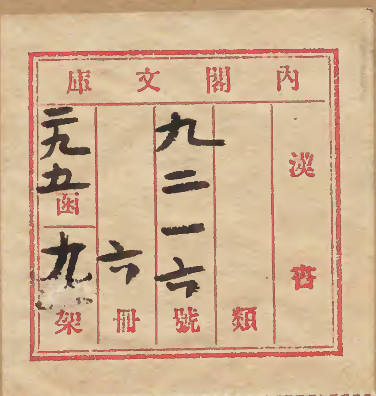 內閣文庫
漢書
類
九二一六號
六冊
二九五函
九架